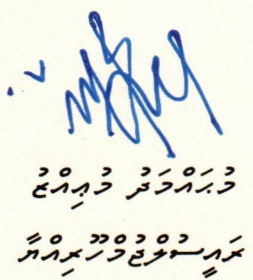 މުޙައްމަދު މުޢިއްޒު
ރައީސުލްޖުމްހޫރިއްޔާ